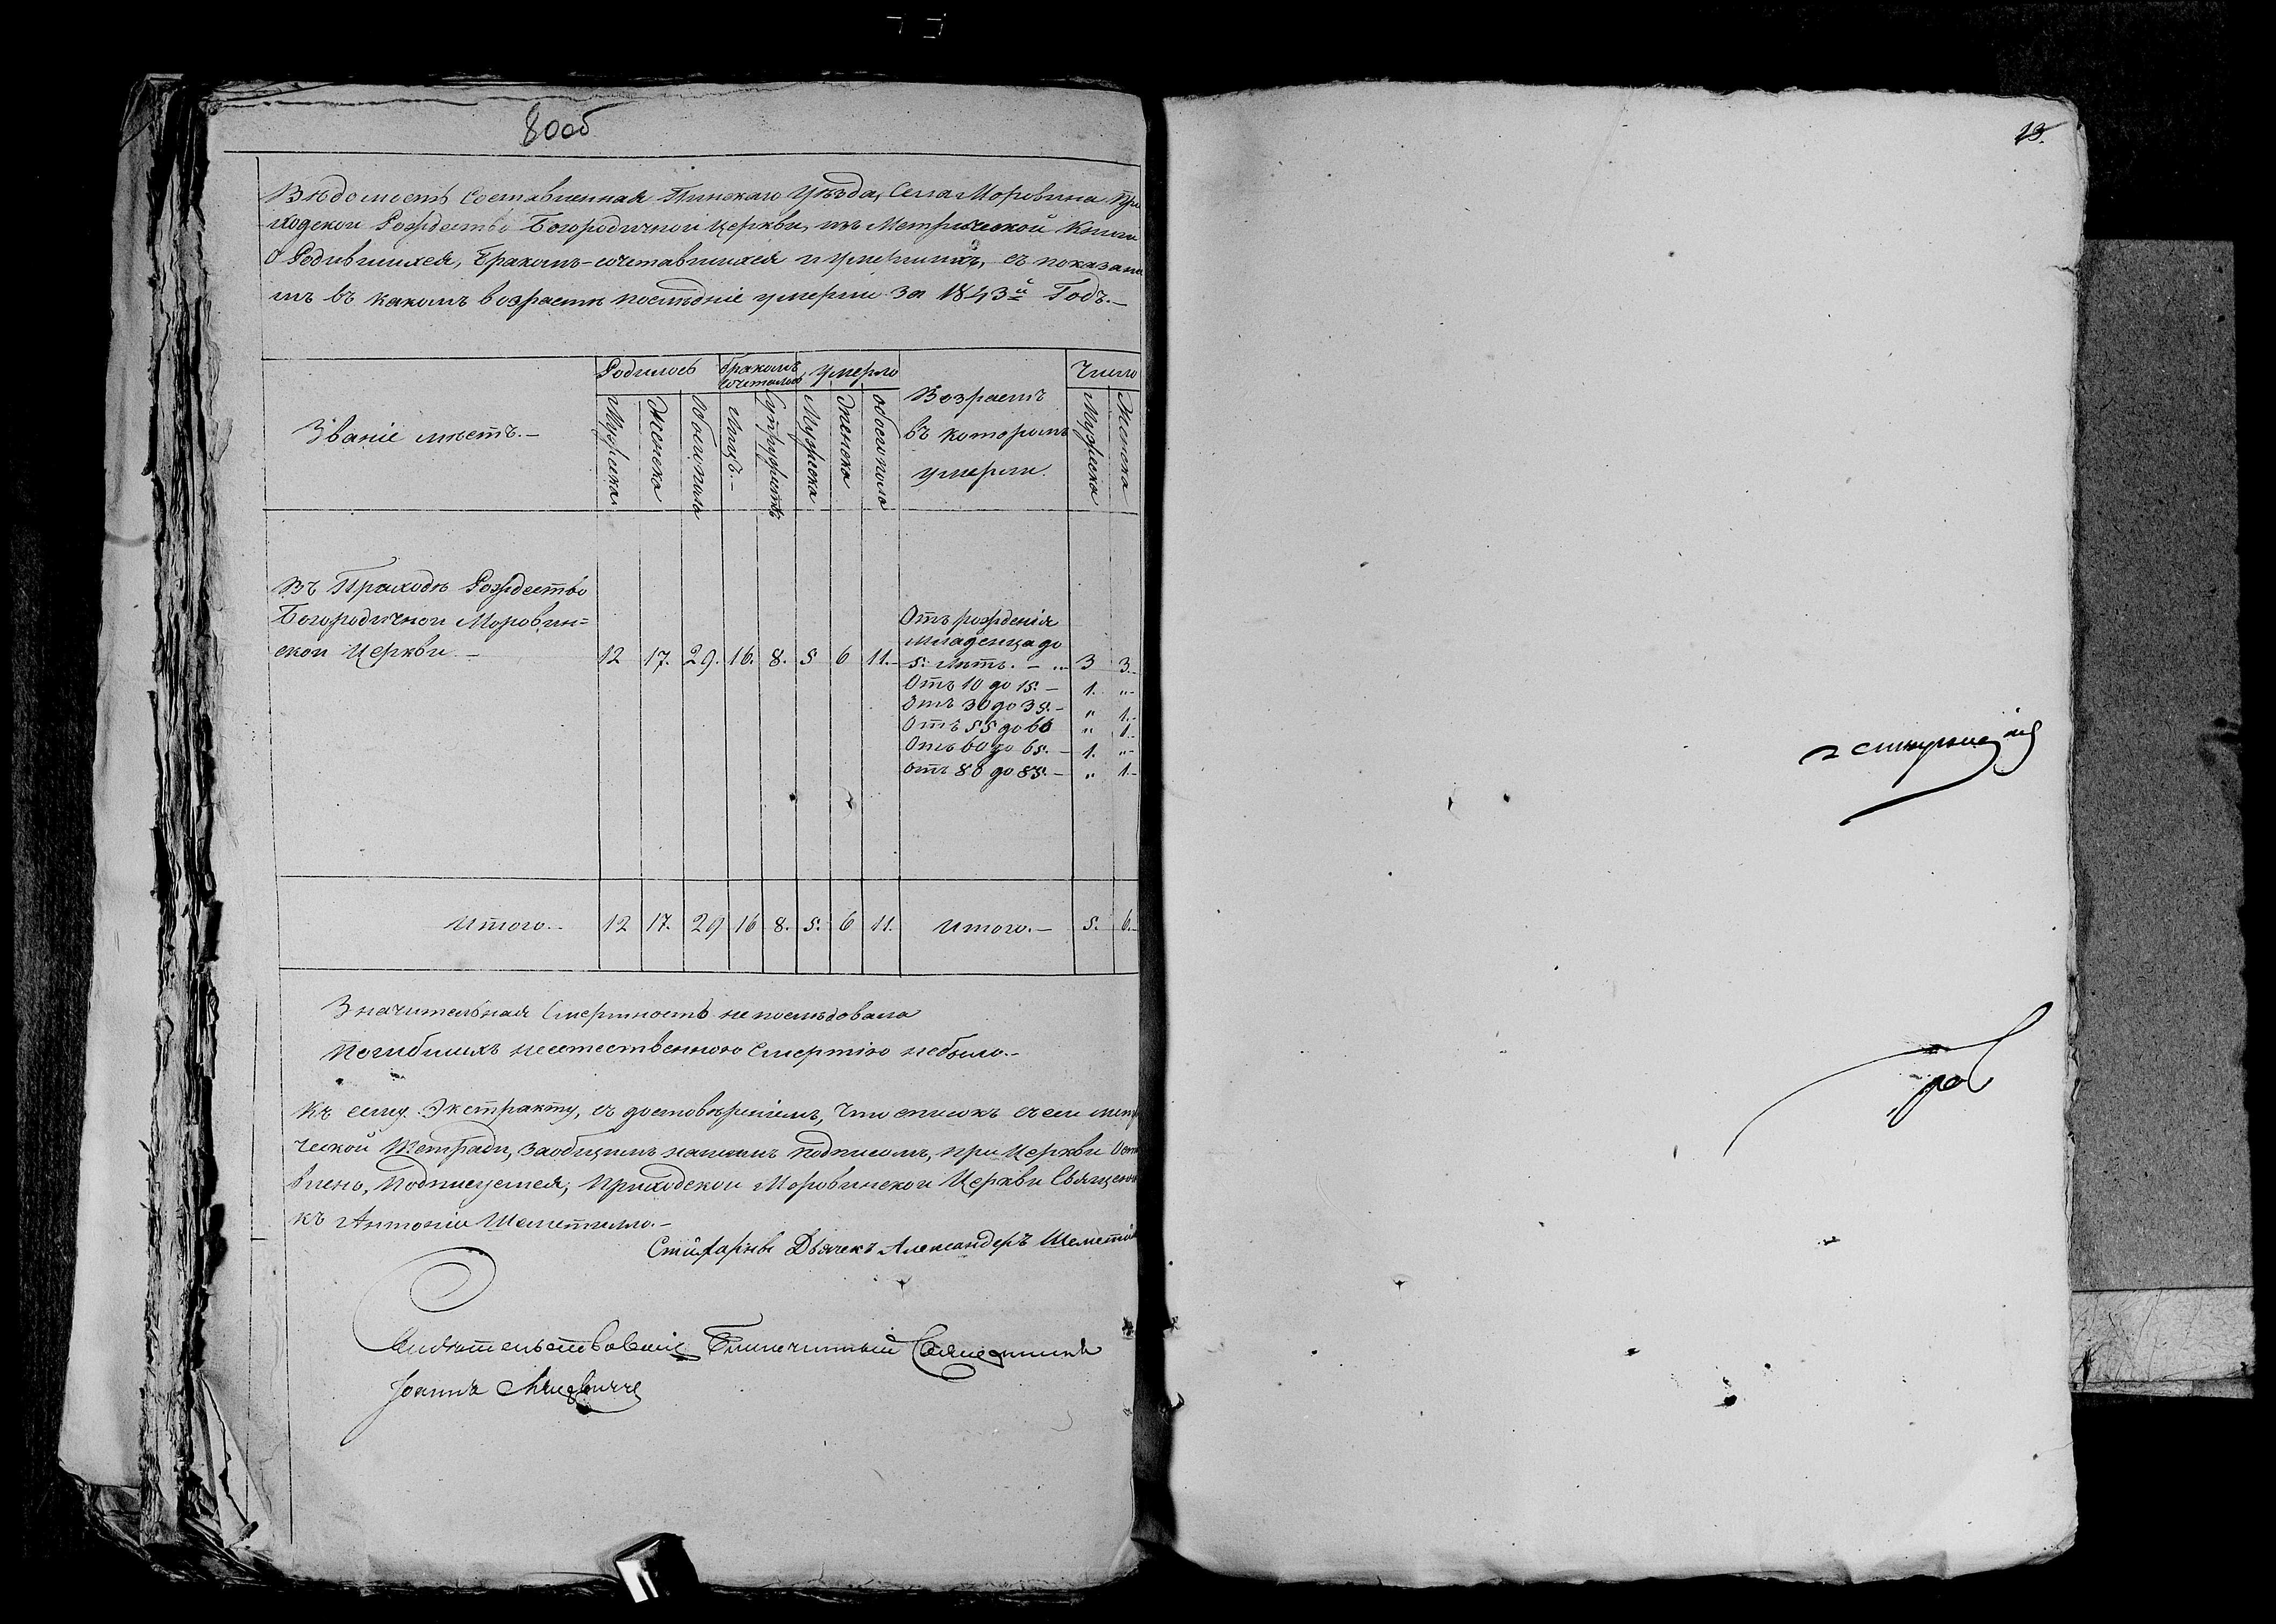 80об
Вѣдомость Составленная Пинскаго Уѣзда, Села Моровина При
ходской Рождество Богородичной Церкви, изъ Метрической Книги
О Родившихся, Бракомъ-сочетавшихся и умершихъ, съ показані
мъ въ какомъ возрастѣ послѣдніе умерли за 1843й Годъ.—
Званіе мѣстъ.—
Родилось
Бракомъ сочеталось
Умерло
Возрастъ въ которомъ умерли.
Число
Мужеска Женска Обоего пола Лицъ.— Супружествъ Мужеска Женска обоего пола Мужеска Женска
Въ Приходѣ Рождество
Богородичной Моровин=
ской Церкви.— 12 17. 29. 16. 8. 5 6 11.—
Отъ рожденія
младенца до
5. лѣтъ. — „ 3 3.—
Отъ 10 до 15.— 1. „—
Отъ 30 до 35.— „ 1.—
Отъ 55 до 60 „ 1.—
Отъ 60 до 65.— 1. „—
Отъ 80 до 85.— „ 1.—
Итого.— 12 17. 29 16 8. 5. 6 11. Итого.— 5. 6.—
Значительная Смертность не послѣдовала
Погибшихъ неестественною Смертію небыло.—
Къ сему Экстракту, съ достовѣреніемъ, Что списокъ съ сей метр
ческой Тетради, заобщимъ нашимъ подписомъ, при Церкви Оста
влено, Подписуемся; Приходской Моровинской Церкви Священни
къ Антоній Шеметилло.—
Дьячекъ Александеръ Шемети
Свидѣтельствовалъ Благочинный Священникъ
Іоаннъ
13.